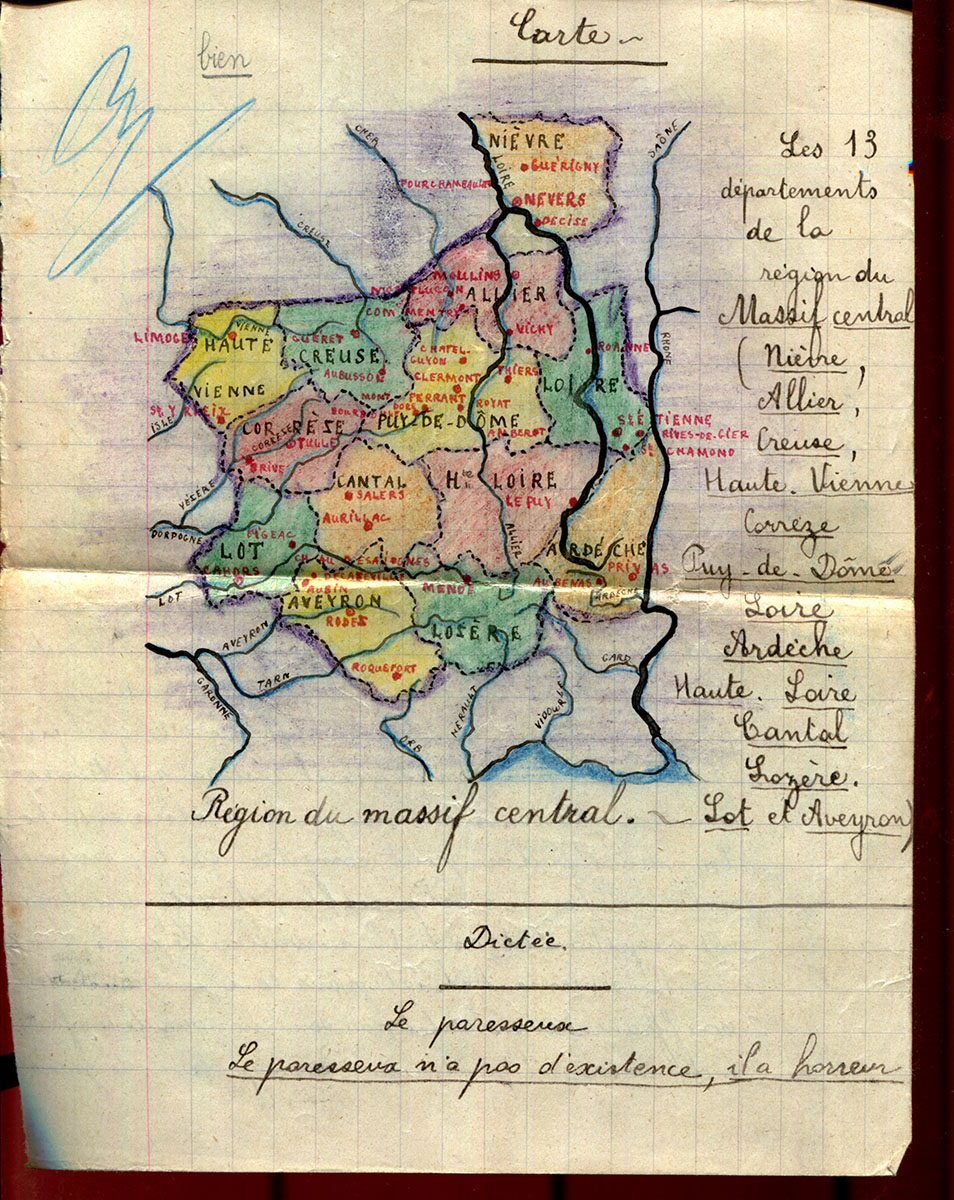 bien
Carte
CHER
SAÔNE
NIÈVRE
LOIRE
GUÉRIGNY
FOURCHAMBAULT
NEVERS
DECISE
CREUSE
MOULINS
ALLIER
COMMENTRY
VICHY
LIMOGES
VIENNE
HAUTE
VIENNE
GUÉRET
CREUSE
AUBUSSON
CHATEL
GUYON
CLERMONT
FERRANT
THIERS
ROYAT
MONT
DORE
PUY-DE-DÔME
AMBERT
ROANNE
LOIRE
RHONE
ST ETIENNE
RIVES-DE-GIER
ST CHAMOND
ST YRIEIX
ISLE
CORRÈZE
CORREZE
TULLE
BRIVE
VÉZÈRE
DORDOGNE
CANTAL
SALERS
AURILLAC
Hte LOIRE
LE PUY
ALLIER
ARDÈCHE
PRIVAS
AUBENAS
ARDÈCHE
FIGEAC
LOT
CAHORS
LOT
DECAZEVILLE
AUBIN
AVEYRON
RODES
MENDE
LOSÈRE
ROQUEFORT
AVEYRON
TARN
GARONNE
ORB
HERAULT
VIDOURLE
GARD
Les 13
départements
de la
région du
Massif central
(Nièvre,
Allier,
Creuse,
Haute-Vienne
Corrèze
Puy-de-Dôme
Loire
Ardèche
Haute-Loire
Cantal
Lozère.
Lot et Aveyron)
Région du massif central.
Dictée.
Le paresseux
Le paresseux n'a pas d'existence, il a horreur